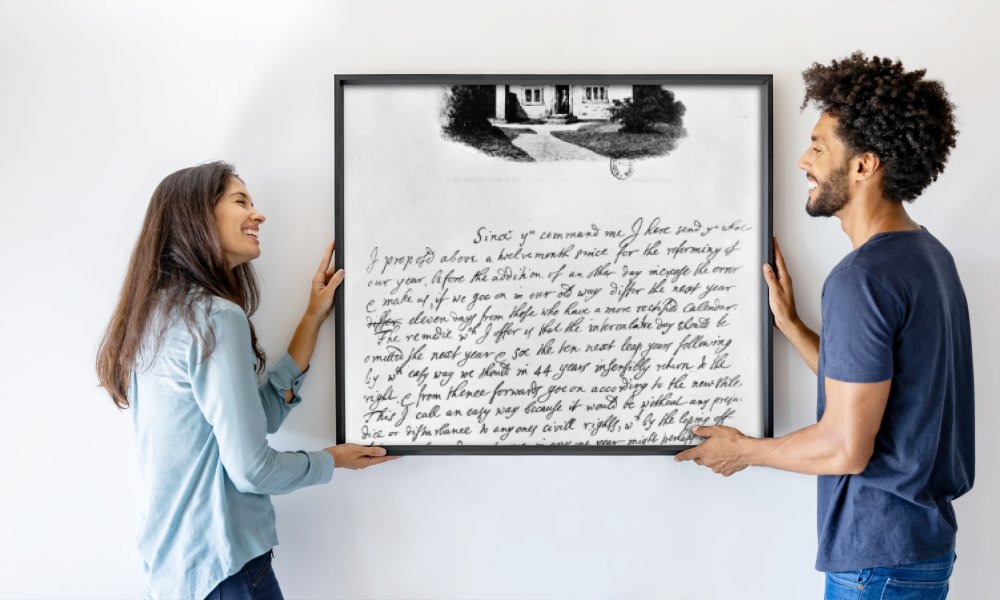 Since yᵘ command me I here send yᵘ what
I proposed above a twelve month since for the reforming of
our year, before the addition of an other day increase the error
& make us, if we goe on in our old way differ the next year
differ eleven days from those who have a more rectified Calendar.
The remedie wᶜʰ I offer is that the intercalaire day should be
omitted the next year & soe the ten next leap years following
by wᶜʰ easy way we should in 44 years insensibly return to the
right & from thence forwards goe on according to the new stile
This I call an easy way because it would be without any preju-
dice or disturbance to any ones civill rights, wᶜʰ by the loping off
in any one year might perhaps